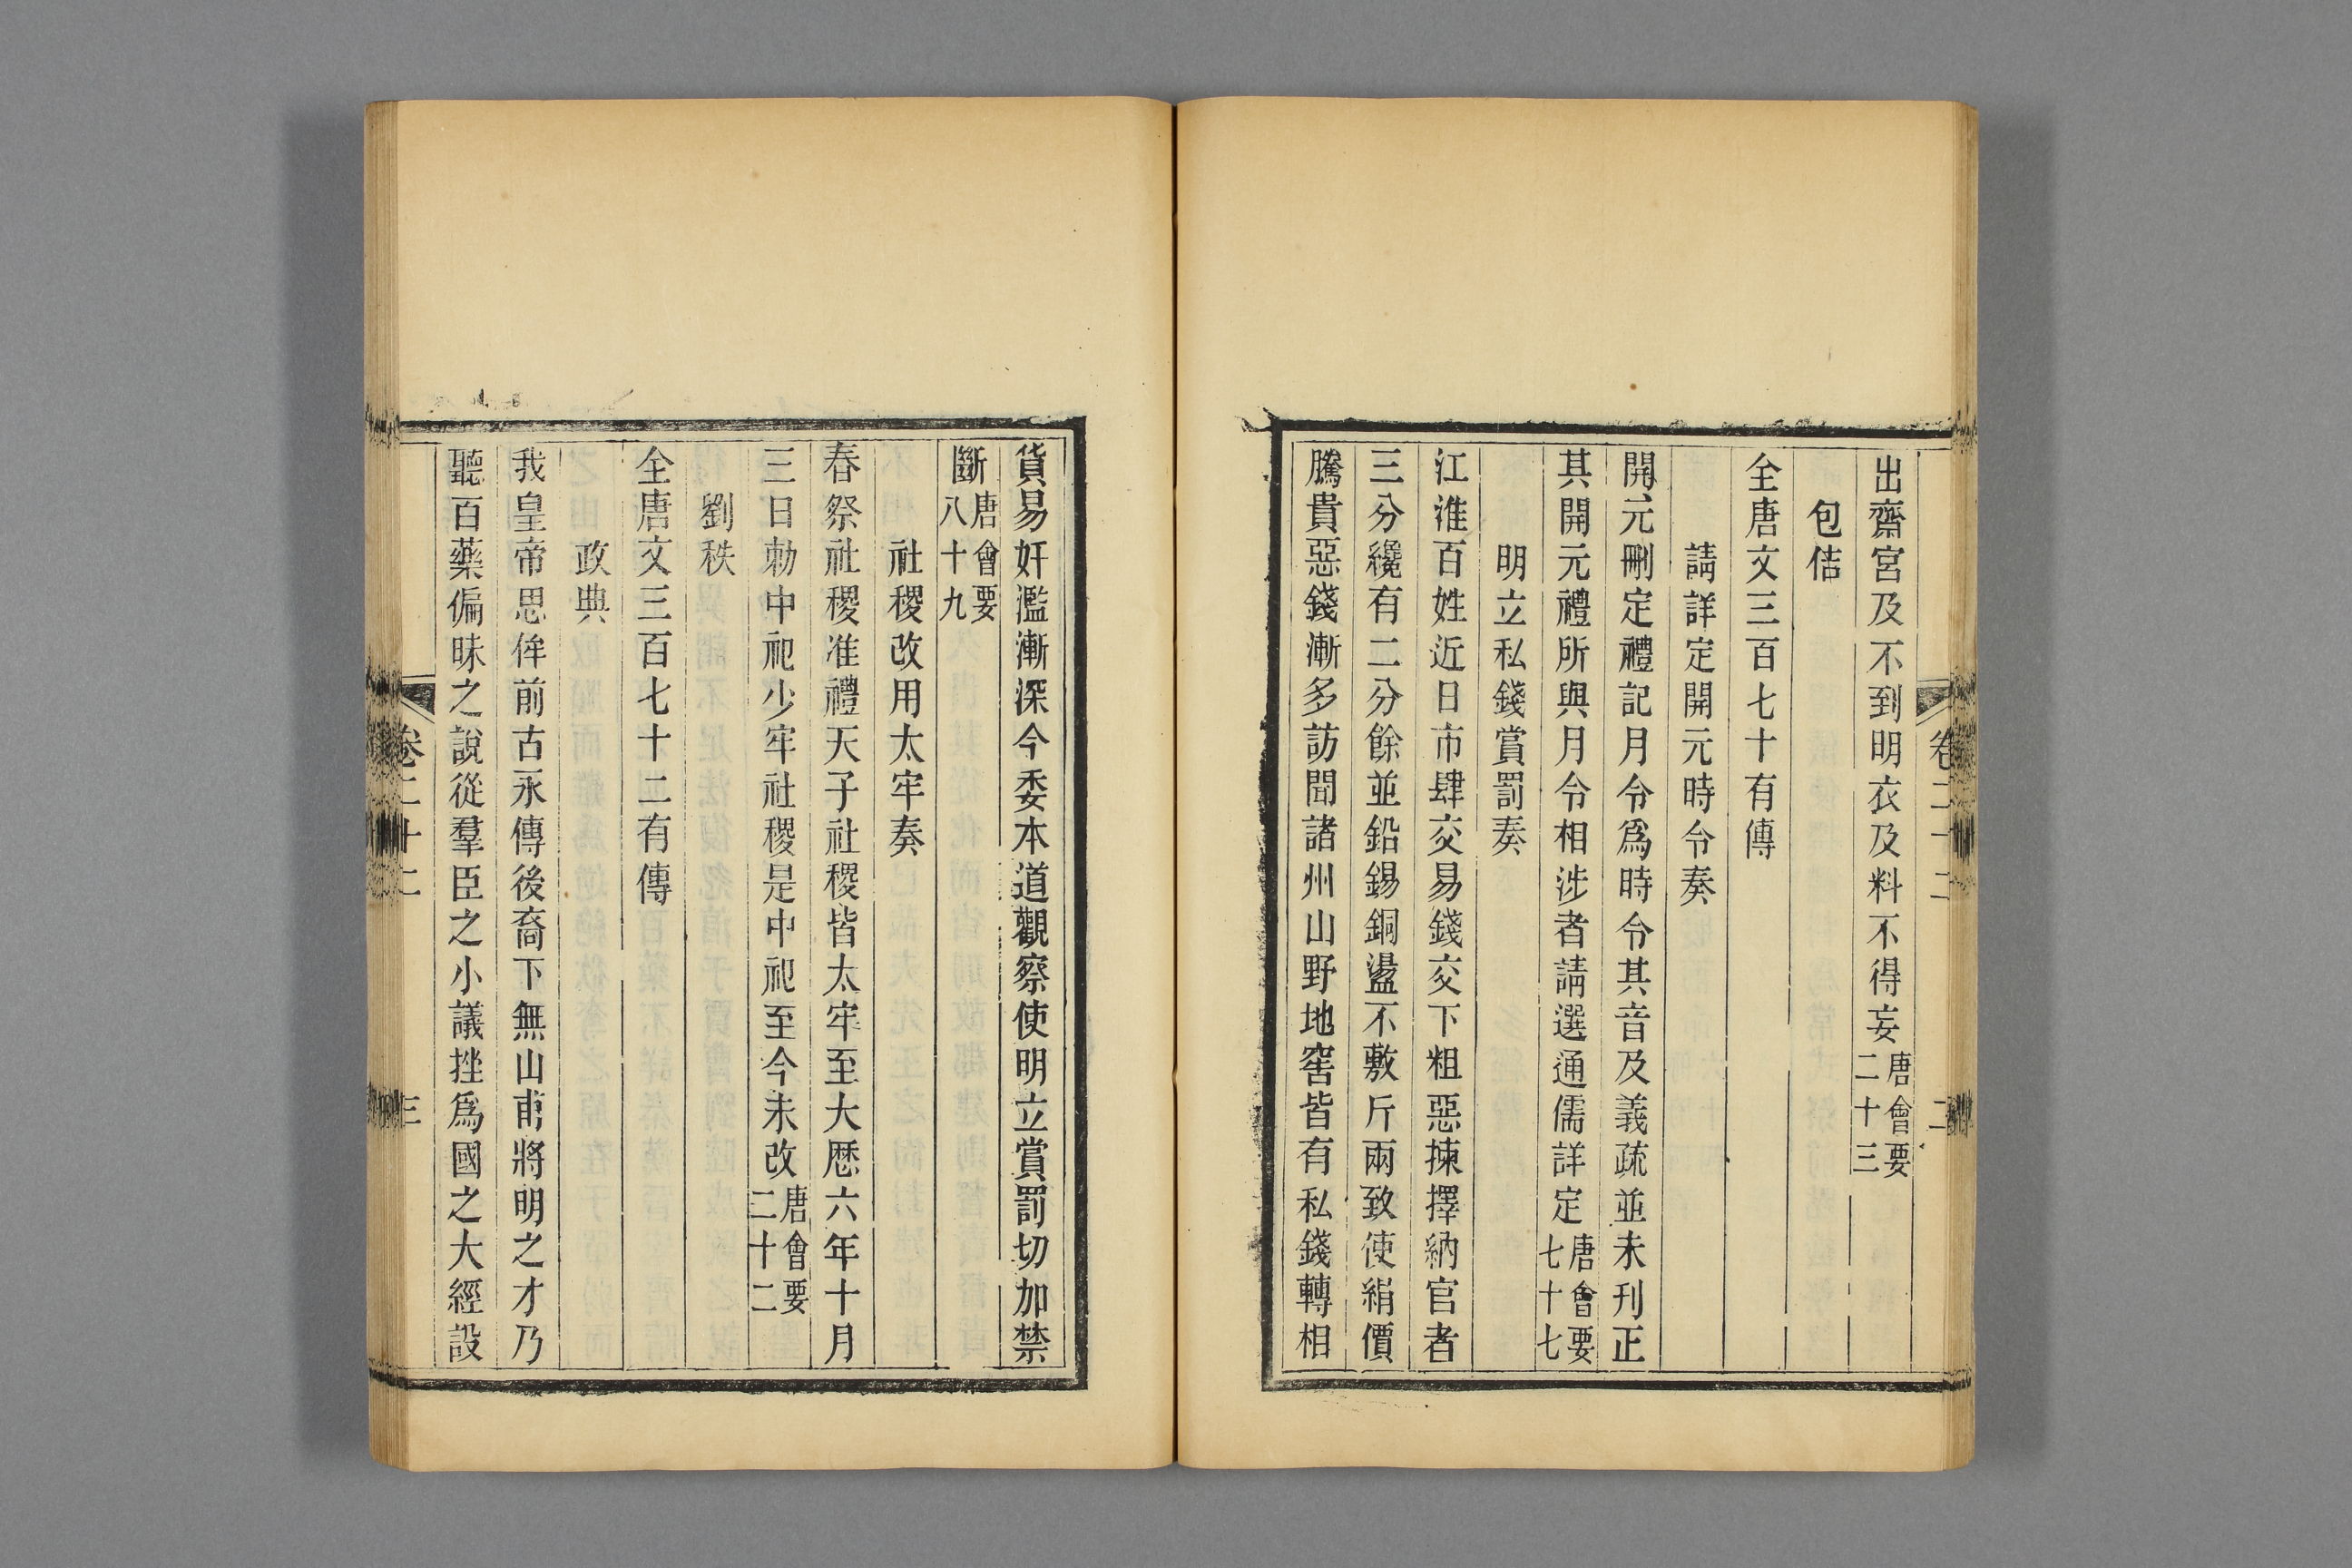 出齋宮及不到明衣及料不得妄唐會要二十三
包佶
全唐文三百七十有傳
請詳定開元時令奏
開元刪定禮記月令爲時令其音及義疏並未刋正
其開元禮所與月令相涉者請選通儒詳定唐會要七十七
明立私錢賞罰奏
江淮百姓近日市肆交易錢交下粗惡揀擇納官者
三分纔有二分餘並鉛錫銅盪不敷斤兩致使絹價
騰貴惡錢漸多訪聞諸州山野地窖皆有私錢轉相
卷二十二
二
貨易奸濫漸深今委本道觀察使明立賞罰切加禁
斷唐會要八十九
社稷改用太牢奏
春祭社稷准禮天子社稷皆太牢至大厯六年十月
三日勅中祀少牢社稷是中祀至今未改唐會要二十二
劉秩
全唐文三百七十二有傳
政典
我皇帝思侔前古永傳後裔下無山甫將明之才乃
聽百藥偏昧之說從羣臣之小議挫爲國之大經設
卷二十二
三